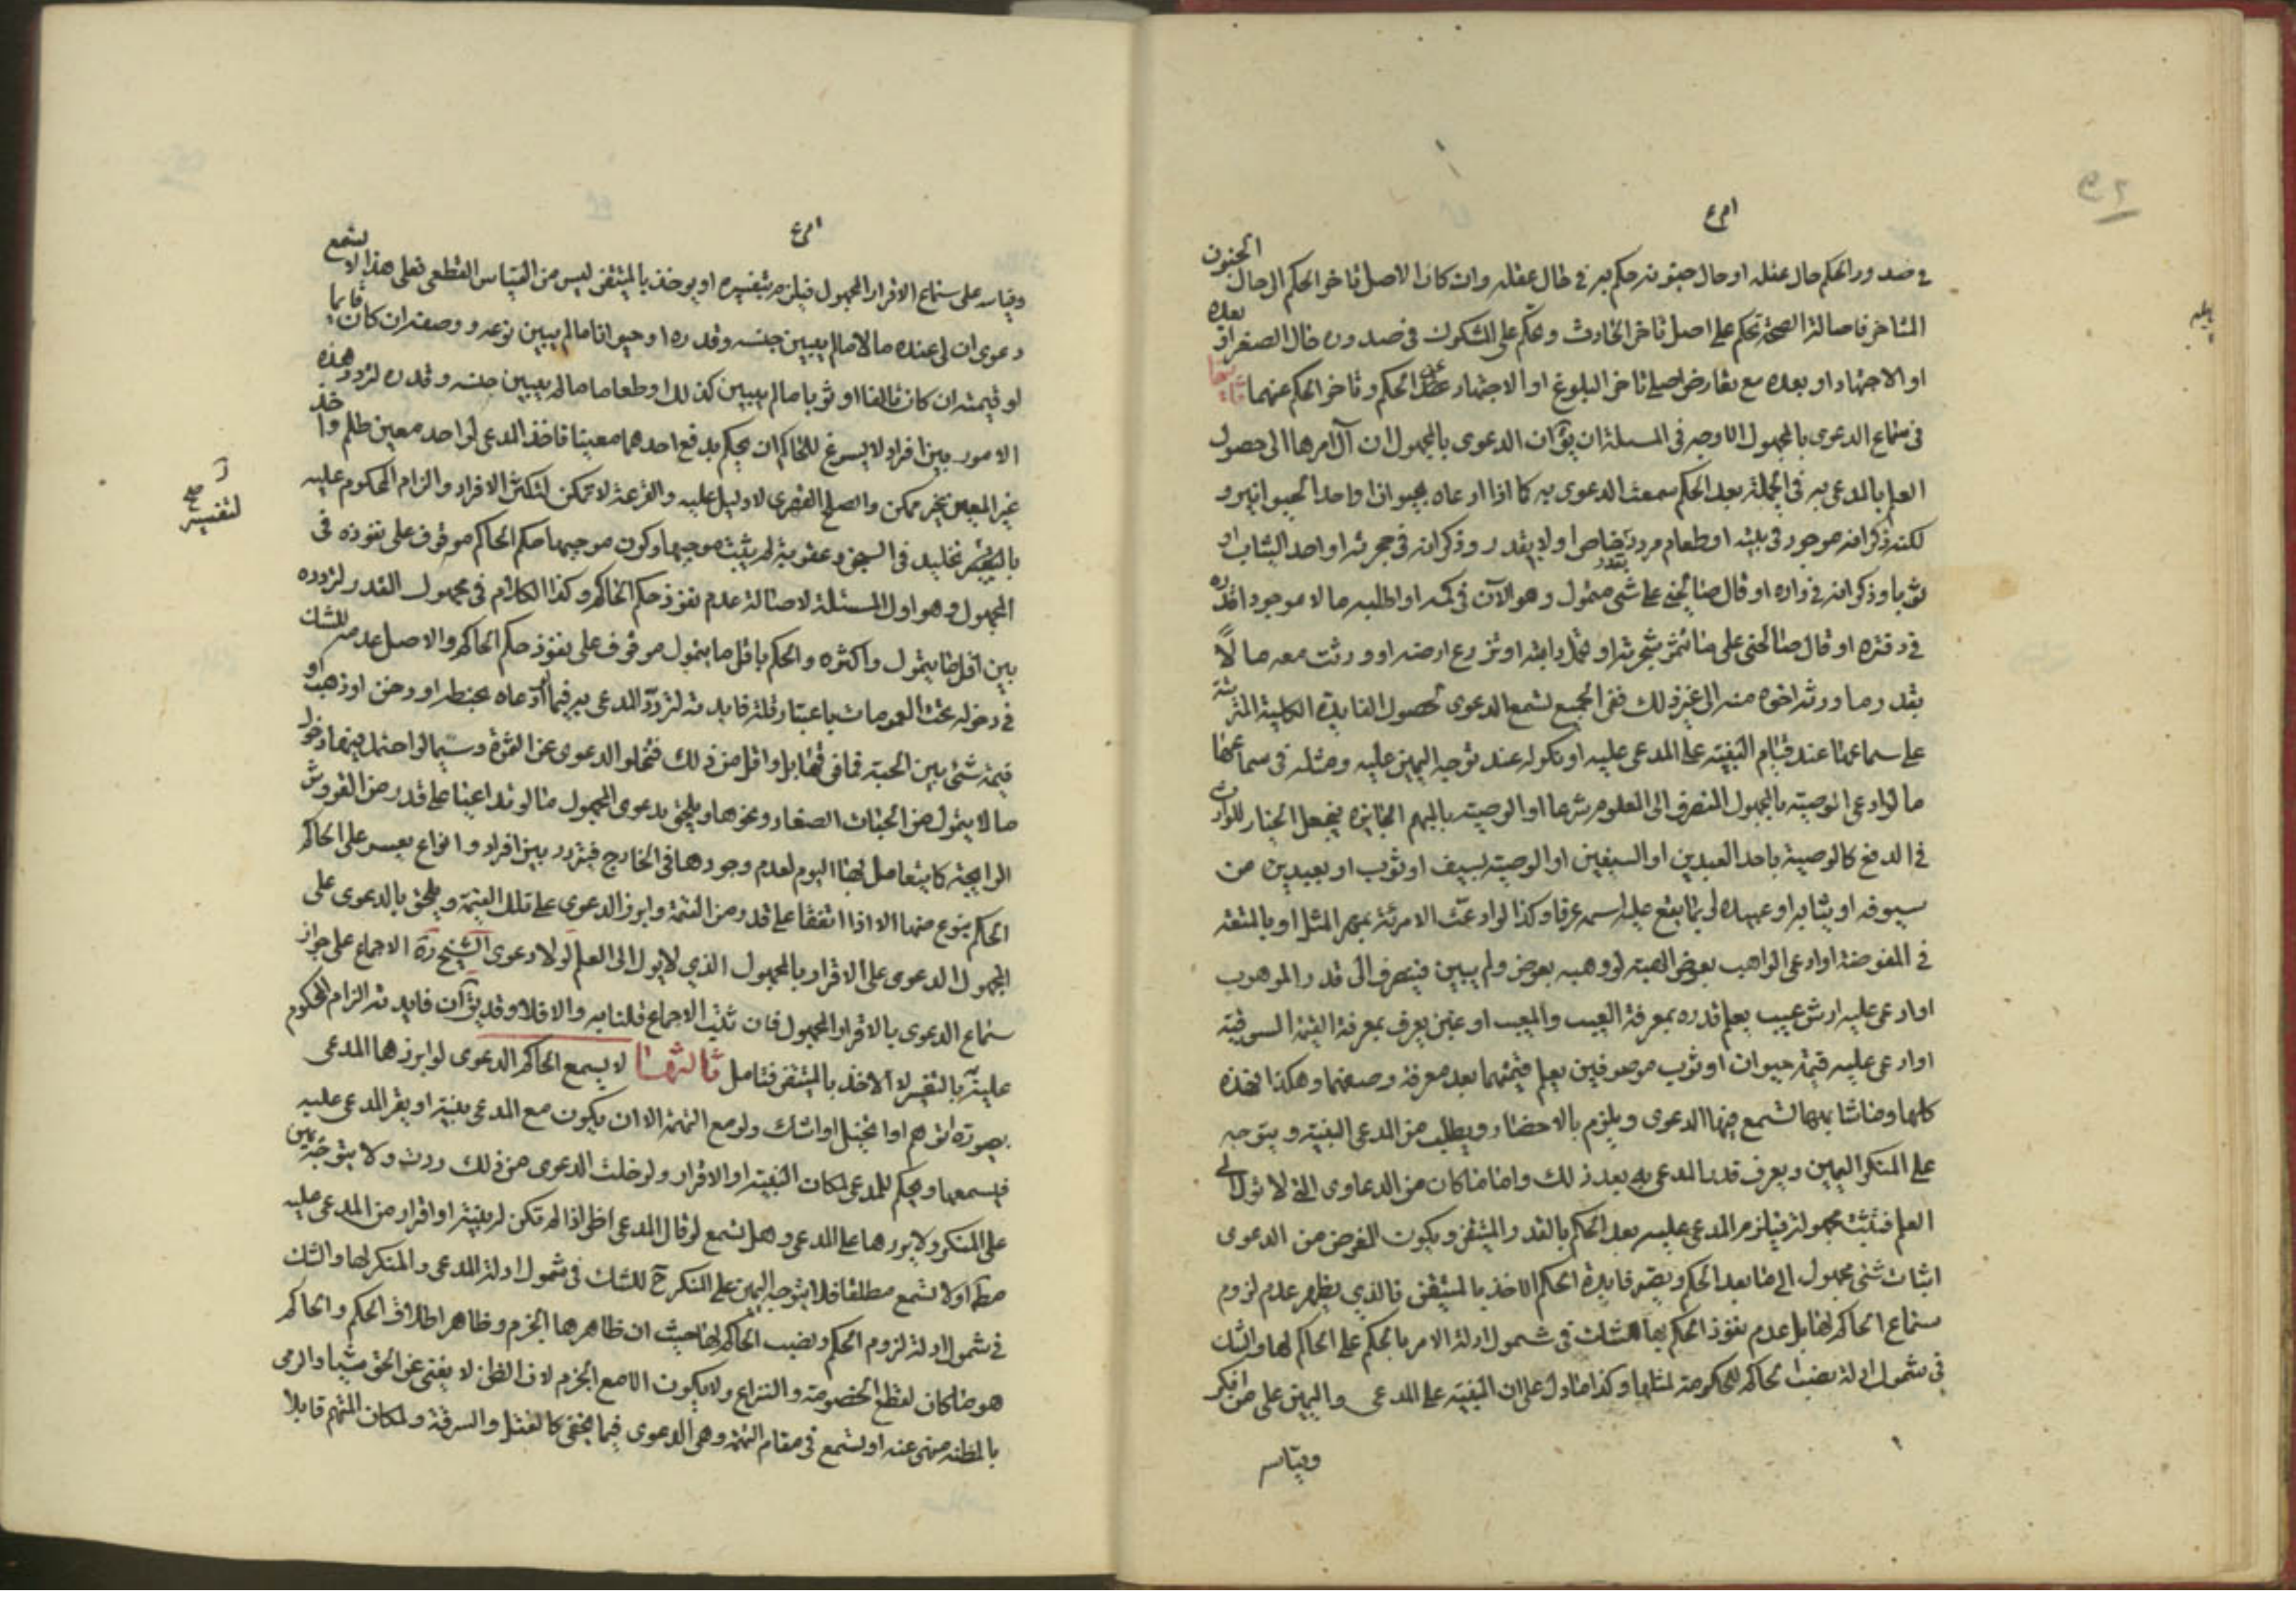 في صدور الحكم حال عقله او حال جنونه حكم به في حال عقله وان كان الاصل تاخر الحكم الى حال الجنون
المتاخر فاصالة الصحة تحكم على اصل تاخر الحادث وتحكم على المشكوك في صدوره حال الصغر او بعده
او الاجتهاد او بعده مع تعارض اصلي تاخر البلوغ او الاجتهاد عن الحكم وتاخر الحكم عنهما
في سماع الدعوى بالمجهول الاوجه في المسئلة ان يق ان الدعوى بالمجهول ان آل امرها الى حصول
العلم بالمدعى به في الجملة بعد الحكم سمعت الدعوى به كما اذا ادعاه بحيوان او احد الحيوانين و
لكنه ذكر انه موجود في بيته او طعام مردد خاص او لا يقدر وذكر انه في حجرته او احد الثياب او
ثوبا وذكر انه في داره او قال صالحني على شي متمول وهو الآن في كمه او اطلبه مالا موجودا قدره
في دفتره او قال صالحني على ما تثمر شجرته او تحمل دابته او تزرع ارضه او ورثت معه مالاً
بقدر ما ورثه اخوه منه الى غير ذلك ففي الجميع تسمع الدعوى لحصول الفايدة الكلية المترتبة
على سماعها عند قيام البينة على المدعى عليه او نكوله عند توجه اليمين عليه ومثله في سماعها
ما لو ادعى الوصية بالمجهول المنصرف الى المعلوم شرعا او الوصية بالمبهم الجايزة فيجعل الخيار للوارث
في الدفع كالوصية باحد العبدين او السيفين او الوصية بسيف او ثوب او بعبد من
سيوفه او ثيابه او عبيده او بما يقع عليه اسمه عرفا وكذا لو ادعت الامرئة بمهر المثل او بالمتعة
في المفوضة او ادعى الواهب بعوض الهبة لو وهبه بعوض ولم يبين فينصرف الى قدر الموهوب
او ادعى عليه ارش عيب يعلم قدره بمعرفة العيب والمعيب او غبن يعرف بمعرفة القيمة السوقية
او ادعى عليه قيمة حيوان او ثوب موصوفين يعلم قيمتهما بعد معرفة وصفهما وهكذا فهذه
كلها وما شابهها تسمع فيها الدعوى ويلزم بالاحضار ويطلب من المدعي البينة ويتوجه
على المنكر اليمين ويعرف قدر المدعى به بعد ذلك واما ما كان من الدعاوى التي لا تؤل الى
العلم فتثبت مجهولة فيلزم المدعى عليه بعد الحكم بالقدر المتيقن ويكون الغرض من الدعوى
اثبات شئ مجهول الى ما بعد الحكم ويصير فايدة الحكم الاخذ بالمتيقن فالذي يظهر عدم لزوم
سماع الحاكم لها بل عدم نفوذ الحكم بها للشك في شمول ادلة الامر بالحكم على الحاكم لها والشك
في شمول ادلة نصب الحاكم للحكومة لمثلها وكذا ما دل على ان البينة على المدعي واليمين على من انكر
وقياسه
وقياسه على سماع الاقرار المجهول فيلزم بتفسيره او يوخذ بالمتيقن ليس من القياس القطعي فعلى هذا لا تسمع
دعوى ان لي عنده مالا ما لم يبين جنسه وقدره او حيوانا ما لم يبين نوعه ووصفه ان كان قايما
او قيمته ان كان تالفا او ثوبا ما لم يبين كذلك او طعاما ما لم يبين جنسه وقدره لتردد هذه
الامور بين افراد لا يسوغ للحاكم ان يحكم بدفع احدهما معينا فاخذ المدعي لواحد معين ظلم واخذ
غير المعين غير ممكن والصلح القهري لا دليل عليه والقرعة لا تمكن لتكثر الافراد والزام المحكوم عليه
بالتفسير تخليد في السجن وعقوبة لم يثبت موجبها وكون موجبها حكم الحاكم موقوف على نفوذه في
المجهول وهو اول المسئلة لاصالة عدم نفوذ حكم الحاكم وكذا الكلام في مجهول القدر لتردده
بين اقل ما يتمول واكثره والحكم باقل ما يتمول موقوف على نفوذ حكم الحاكم والاصل عدمه للشك
في دخوله تحت العمومات باعتبار قلة فايدته لتردد المدعى به فيما ادعاه بحنطة او دخن او ذهب او
قيمة شئ بين الحبة فما فوقها بل واقل من ذلك فتخلو الدعوى عن الثمرة وسيما لو احتمل فيها دخول
ما لا يتمول من الحبات الصغار ونحوها ويلحق بدعوى المجهول ما لو تداعيا على قدر من القروش
الرايجة كما يتعامل بها اليوم لعدم وجودها في الخارج فيتردد بين افراد وانواع يعسر على الحاكم
الحكم بنوع منها الا اذا اتفقا على قدر من القيمة وابرز الدعوى على تلك القيمة ويلحق بالدعوى على
المجهول الدعوى على الاقرار بالمجهول الذي لا يول الى العلم لولا دعوى الشيخ ره الاجماع على جواز
سماع الدعوى بالاقرار المجهول فان ثبت الاجماع قلنا به والا فلا وقد يق ان فايدته الزام المحكوم
عليه بالتفسير لا الاخذ بالمتيقن فتامل ثالثها لا يسمع الحاكم الدعوى لو ابرزها المدعي
بصورة الوهم او التخيل او الشك ولو مع التهمة الا ان يكون مع المدعي بينة او يقر المدعى عليه
فيسمعها ويحكم للمدعي لمكان البينة او الاقرار ولو خلت الدعوى من ذلك ردت ولا يتوجه يمين
على المنكر ولا يردها على المدعي وهل تسمع لو قال المدعي اظن اذا لم تكن له بينة او اقرار من المدعى عليه
مطلقا او لا تسمع مطلقا فلا يتوجه اليمين على المنكر ح للشك في شمول ادلة المدعي والمنكر لها والشك
في شمول ادلة لزوم الحكم ونصب الحاكم لها حيث ان ظاهرها الجزم وظاهر اطلاق الحكم والحاكم
هو ما كان لقطع الخصومة والنزاع ولا يكون الا مع الجزم لان الظن لا يغني عن الحق شيئا والرمي
بالمظنة منهي عنه او تسمع في مقام التهمة وهي الدعوى فيما يخفى كالقتل والسرقة ولمكان المتهم قابلا
لتفسير
صح